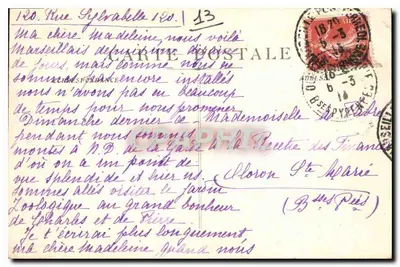 120. Rue Sylvabelle 120. 13
Ma chère Madeleine, nous voilà
Marseillais depuis une dizaine
de jours, mais comme nous ne
sommes pas encore installés
nous n'avons pas eu beaucoup
de temps pour nous promener
Dimanche dernier ce-
pendant nous sommes
montés à N.D. de la Garde
d'où on a un point de
vue splendide et hier ns
sommes allés visiter le jardin
Zoologique au grand bonheur
de Charles et de Pierre.
Je t'écrirai plus longuement
ma chère Madeleine quand nous
CARTE POSTALE
Mademoiselle
à la Recette des Finances
Oloron Ste Marie
(Bses Pées)
6 - 3
14
Bses PYRENEES